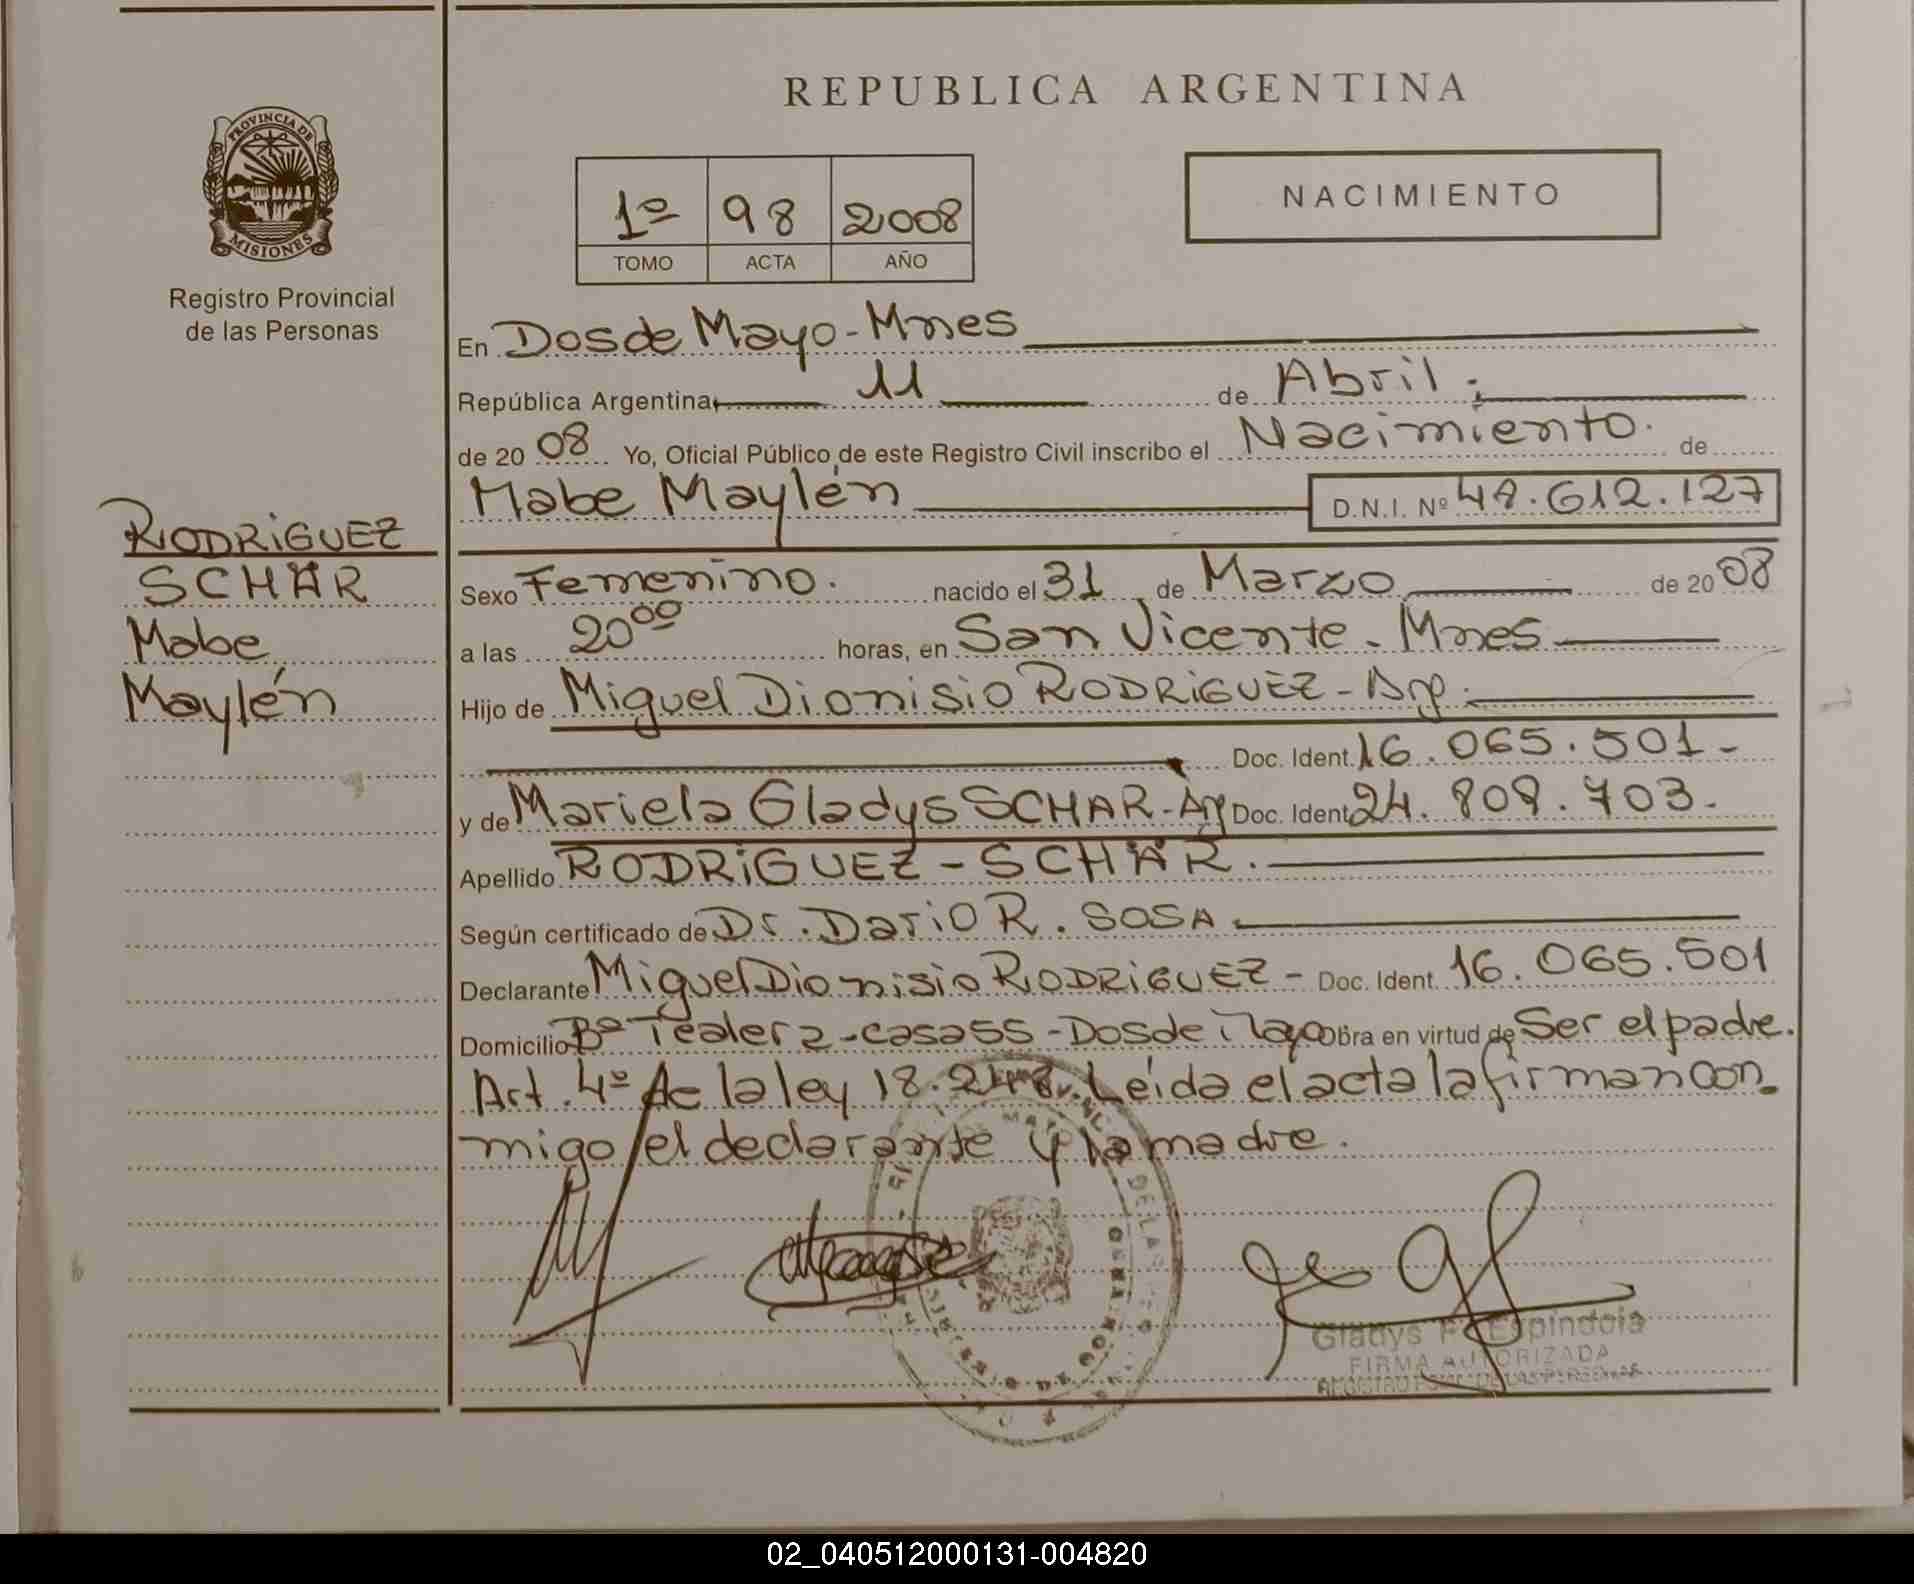 REPUBLICA ARGENTINA
PROVINCIA DE
MISIONES
Registro Provincial
de las Personas
1º 98 2008
TOMO ACTA AÑO
NACIMIENTO
En Dos de Mayo - Mnes
República Argentina, 11 de Abril.
de 2008 Yo, Oficial Público de este Registro Civil inscribo el Nacimiento. de
Mabe Maylén D.N.I. Nº 48.612.127
RODRiGUEZ
SCHÄR
Mabe
Maylén
Sexo Femenino. nacido el 31 de Marzo de 2008
a las 20⁰⁰ horas, en San Vicente - Mnes
Hijo de Miguel Dionisio RODRiGUEZ - Arg.
Doc. Ident. 16.065.501-
y de Mariela Gladys SCHAR - Arg Doc. Ident 24.808.703-
Apellido RODRiGUEZ - SCHÄR.
Según certificado de Dr. Dario R. SOSA
Declarante Miguel Dionisio RODRiGUEZ - Doc. Ident. 16.065.501
Domicilio Bº Tealer 2 - casa 55 - Dos de Mayo Obra en virtud de Ser el padre.
Art. 4º de la ley 18.248. Leída el acta la firman con
migo el declarante y la madre.
Gladys F. Espindola
FIRMA AUTORIZADA
REGISTRO PCIAL. DE LAS PERSONAS
02_040512000131-004820